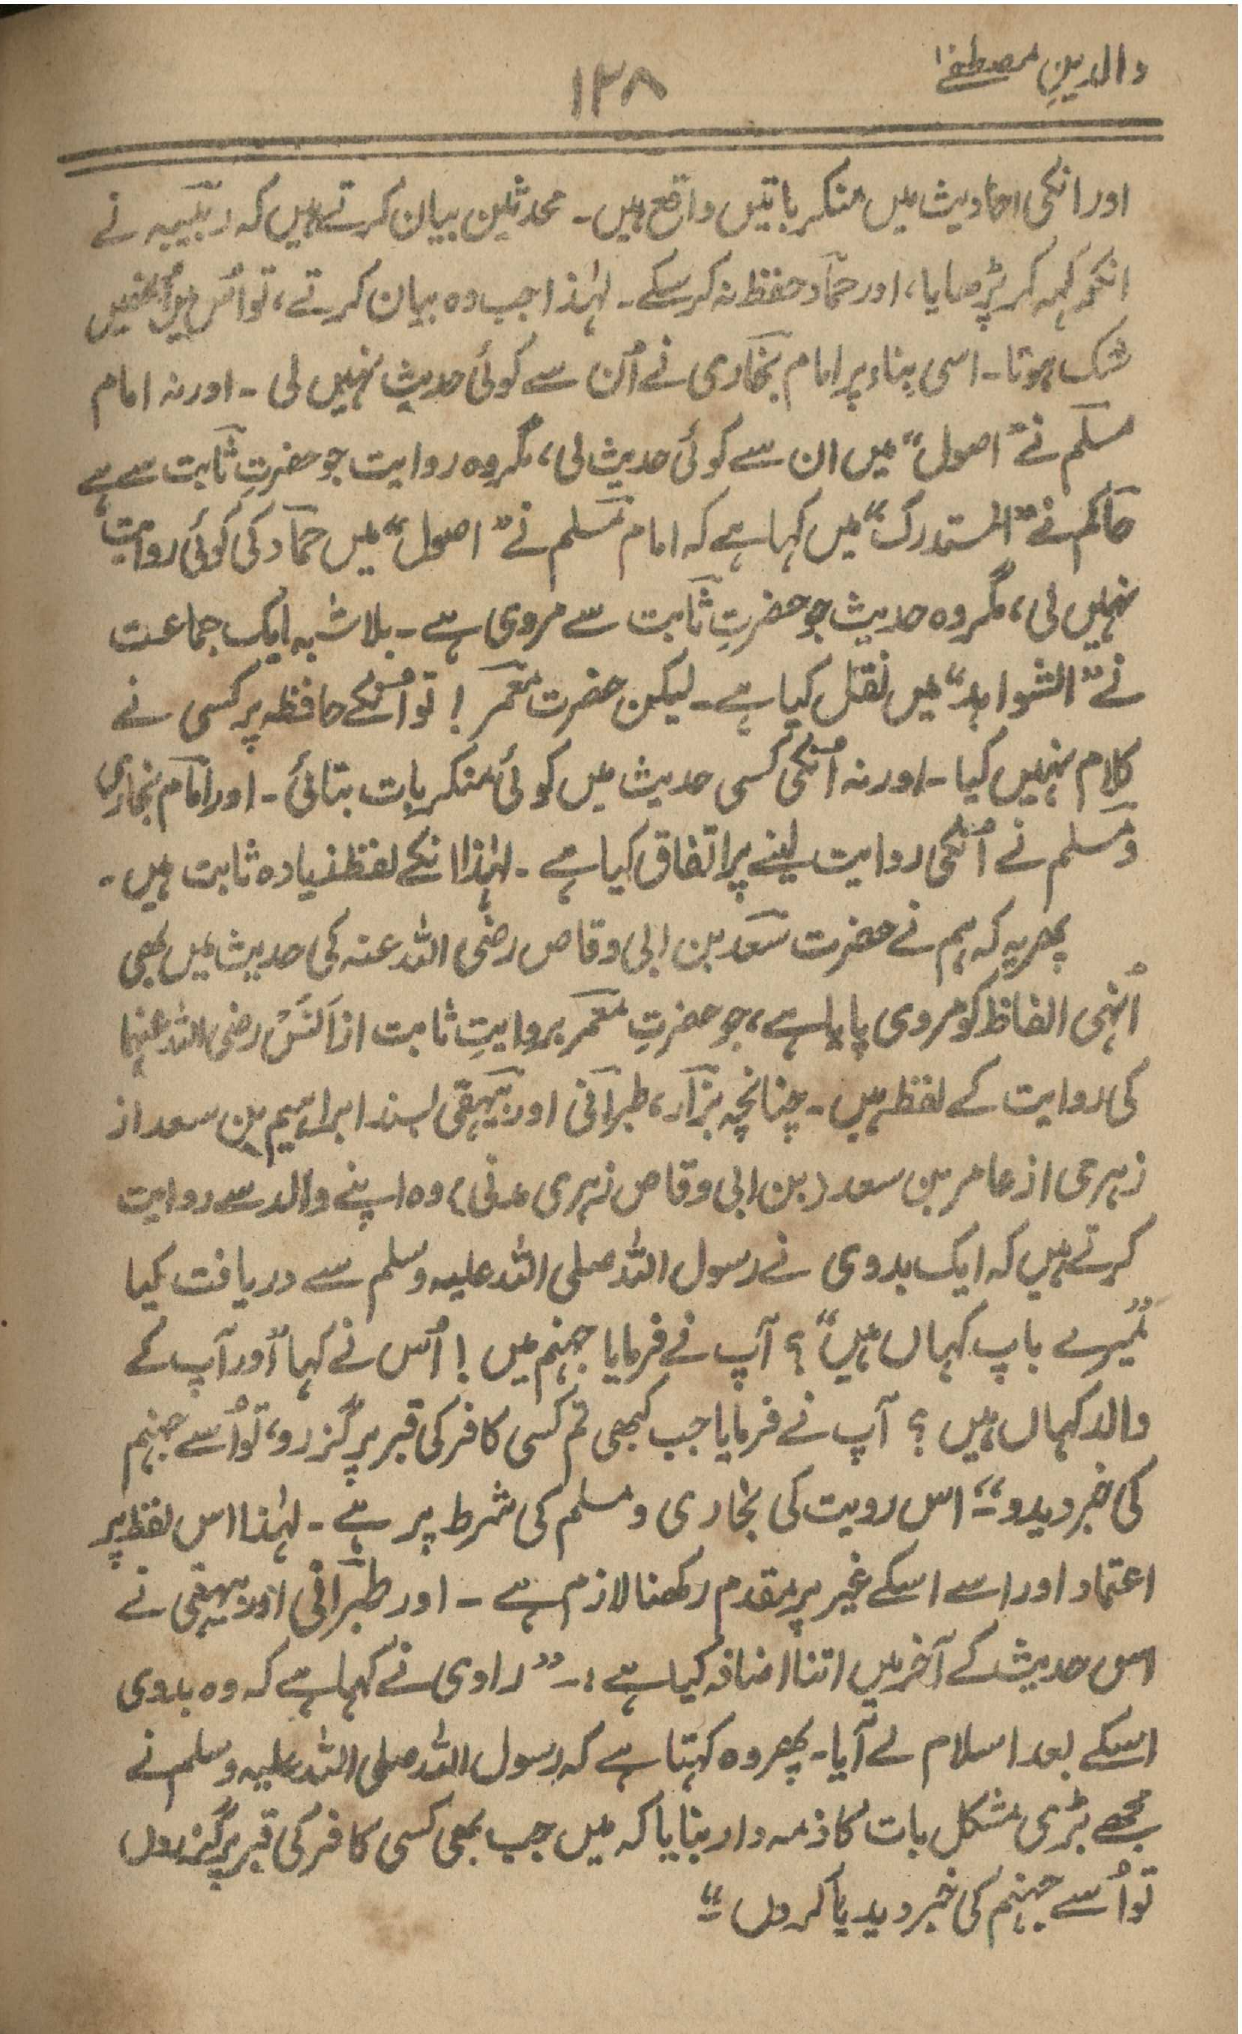 والدینِ مصطفےٰ
۱۳۸
اور انکی احادیث میں منکر باتیں واقع ہیں۔ محدثین بیان کرتے ہیں کہ ربیبہ نے
انکو کہہ کر پڑھایا، اور حمّاد حفظ نہ کر سکے۔ لہٰذا جب وہ بیان کرتے، تو اُس میں اُنھیں
شک ہوتا۔ اسی بناء پر امام بخاری نے اُن سے کوئی حدیث نہیں لی ۔ اور نہ امام
مسلم نے ”اصول“ میں ان سے کوئی حدیث لی، مگر وہ روایت جو حضرتِ ثابت سے ہے
حاکم نے ”المستدرک“ میں کہا ہے کہ امام مسلم نے ”اصول“ میں حمّاد کی کوئی روایت
نہیں لی، مگر وہ حدیث جو حضرتِ ثابت سے مروی ہے ۔ بلاشبہ ایک جماعت
نے ”الشواہد“ میں نقل کیا ہے۔ لیکن حضرت معمر ! تو اُنکے حافظہ پر کسی نے
کلام نہیں کیا ۔ اور نہ اُنکی کسی حدیث میں کوئی منکر بات بتائی ۔ اور امام بخاری
و مسلم نے اُنکی روایت لینے پر اتفاق کیا ہے ۔ لہٰذا انکے لفظ زیادہ ثابت ہیں ۔
پھر یہ کہ ہم نے حضرت سعد بن ابی وقاص رضی اللہ عنہ کی حدیث میں بھی
اُنہی الفاظ کو مروی پایا ہے، جو حضرتِ معمر بروایتِ ثابت از اَنَسْ رضی اللہ عنہما
کی روایت کے لفظ ہیں ۔ چنانچہ بزّار، طبرانی اور بیہقی بسند ابراہیم بن سعد از
زہری از عامر بن سعد (بن ابی وقاص زہری مدنی) وہ اپنے والد سے روایت
کرتے ہیں کہ ایک بدوی نے رسول اللہ صلی اللہ علیہ وسلم سے دریافت کیا
”میرے باپ کہاں ہیں“ ؟ آپ نے فرمایا جہنم میں ! اُس نے کہا ”اور آپ کے
والد کہاں ہیں ؟ آپ نے فرمایا جب کبھی تم کسی کافر کی قبر پر گزرو، تو اُسے جہنم
کی خبر دیدو“۔ اس رویت کی بخاری و مسلم کی شرط پر ہے ۔ لہٰذا اس لفظ پر
اعتماد اور اسے اسکے غیر پر مقدم رکھنا لازم ہے ۔ اور طبرانی اور بیہقی نے
اس حدیث کے آخر میں اتنا اضافہ کیا ہے :۔ ”راوی نے کہا ہے کہ وہ بدوی
اسکے بعد اسلام لے آیا۔ پھر وہ کہتا ہے کہ رسول اللہ صلی اللہ علیہ وسلم نے
مجھے بڑی مشکل بات کا ذمہ دار بنایا کہ میں جب بھی کسی کافر کی قبر پر گزروں
تو اُسے جہنم کی خبر دیدیا کروں “۔